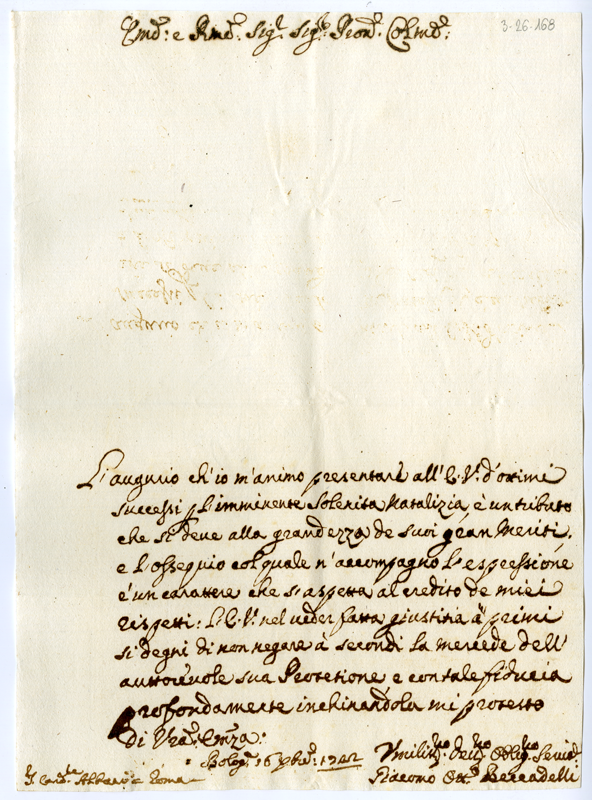 3-26-168
Em̃o: e Rmõ: Sigr: Sigr: Pron: Colmõ:
L'augurio ch'io m'animo presentare all'E.V. d'ottimi
successi p l'imminente Solenità Natalizia, è un tributo
che si deve alla grandezza de suoi gran Meriti,
e l'ossequio col quale n'accompagno l'espressione
è un carattere che s'aspetta al credito de miei
rispetti: L'E.V. nel veder fatta giustizia a' primi
si degni di non negare à secondi la mercede dell'
auttorevole sua Protetione e con tale fiducia
profondamente inchinandola mi protesto
Di Vrã: Emza:
Bologa 16 Xbre: 1742
Umilmo: Devmo: Obligmo: Servid
Sr. Cardle Albani = Roma =
Giacomo Beccadelli